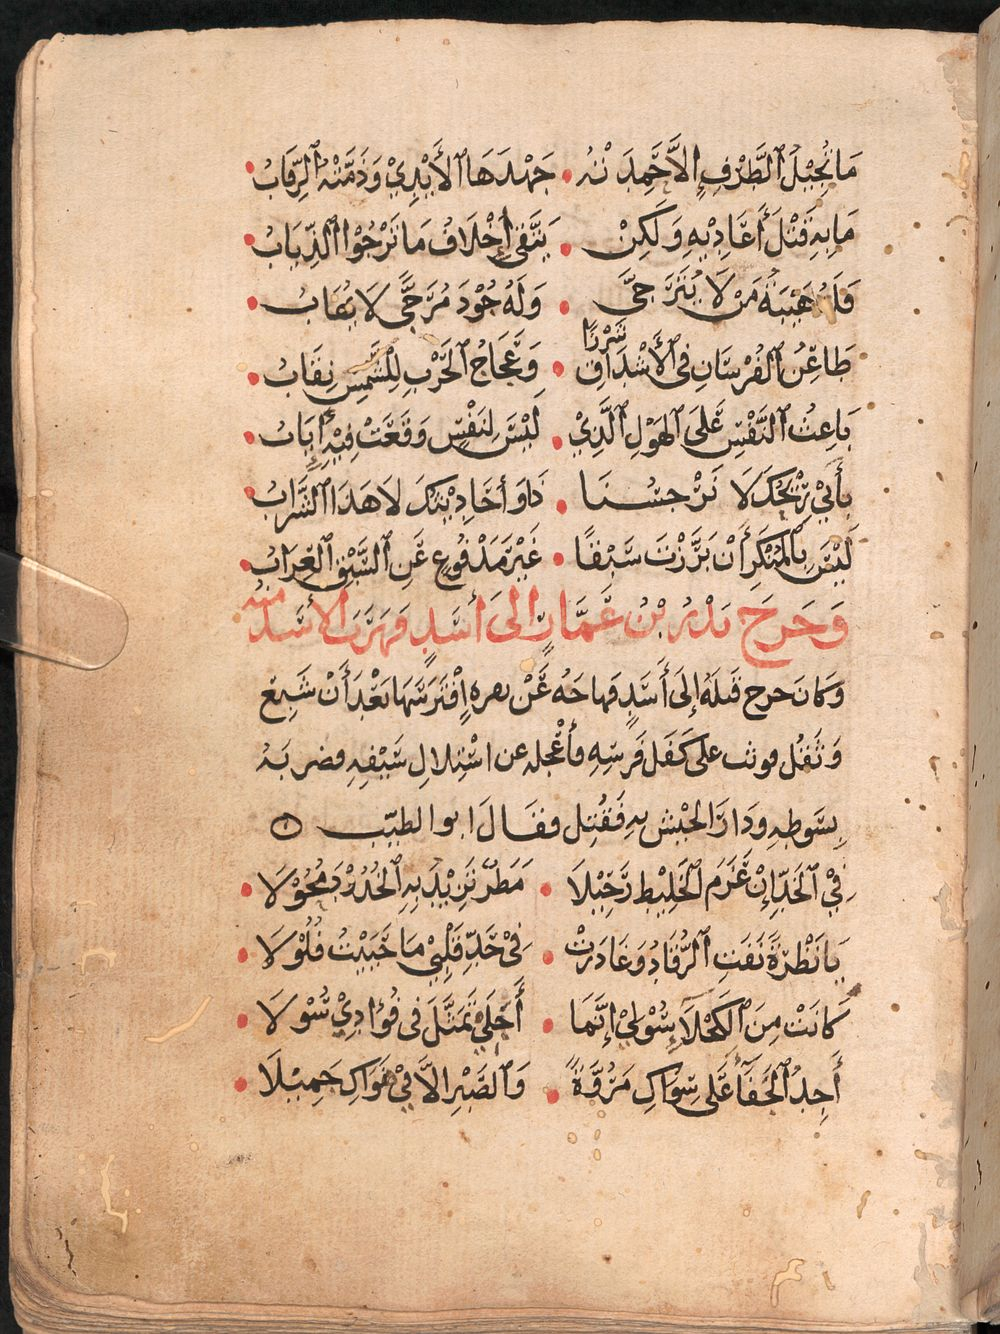 مَا يُجِيْلُ ٱلطَّرْفَ إِلاَّ حَمِدَتْهُ • جَهْدَهَا ٱلأَيْدِيْ وَذَمَّتْهُ ٱلرِّقَابُ •
مَا بِهِ قَتْلُ أَعَادِيْهِ وَلَكِنْ • يَتَّقِي إِخْلَافَ مَا تَرْجُوْا ٱلذِّيَابُ •
فَلَهُ هَيْبَةُ مَنْ لَا يُتَرَجَّى • وَلَهُ جُوْدُ مُرَجَّى لَا يُهَابُ •
طَاعِنُ ٱلفُرْسَانِ فِي ٱلأَحْدَاقِ شَزْرًا • وَعَجَاجُ ٱلحَرْبِ لِلشَّمْسِ نِقَابُ •
بَاعِثُ ٱلنَّفْسِ عَلَى ٱلهَوْلِ ٱلَّذِيْ • لَيْسَ لِنَفْسٍ وَقَعَتْ فِيْهِ إِيَابُ •
بِأَبِيْ رِيْحُكَ لَا نَرْجِسُنَا • ذَا وَأَحَادِيْثُكَ لَا هَذَا ٱلشَّرَابُ
لَيْسَ بِالمُنْكَرِ أَنْ بَرَّزْتَ سَبْقًا • غَيْرُ مَدْفُوعٍ عَنِ ٱلسَّبْقِ ٱلعِرَابُ •
وَخَرَجَ بَدْرُ بْنُ عَمَّارٍ إِلَى أَسَدٍ فَهَرَبَ الأَسَدُ مِنْهُ
وَكَانَ خرج قَبلَهُ إِلَى أَسَدٍ فهاجَهُ عَنْ بقره اِفْتَرَسَهَا بَعْدَ أَنْ شَبِعَ
وَثَقُلَ فوثب على كَفَلِ فَرَسِهِ فأَعْجله عن اسْتِلالِ سَيْفِهِ فضربَهُ
بِسَوطِهِ وَدَارَ الجَيْشُ بِهِ فَقُتِلَ فقَالَ ابو الطيِّب
فِيْ ٱلخَدِّ إِنْ عَزَمَ ٱلخَلِيْطُ رَحِيْلَا • مَطَرٌ تَزِيْدُ بِهِ ٱلخُدُوْدُ مُحُوْلَا •
يَا نَظْرَةً نَفَتِ ٱلرُّقَادَ وَغَادَرَتْ • فِيْ حَدِّ قَلْبِيْ مَا حَيِيْتُ فُلُوْلَا •
كَانَتْ مِنَ ٱلكَحْلَآءِ سُوْلِيْ إِنَّمَا • أَجَلِيْ تَمَثَّلَ فِي فُؤَادِيْ سُوْلَا •
أَجِدُ ٱلجَفَآءَ عَلَى سِوَاكِ مَرُوَّةً • وَٱلصَّبْرَ إِلاَّ فِيْ نَوَاكِ جَمِيْلَا •